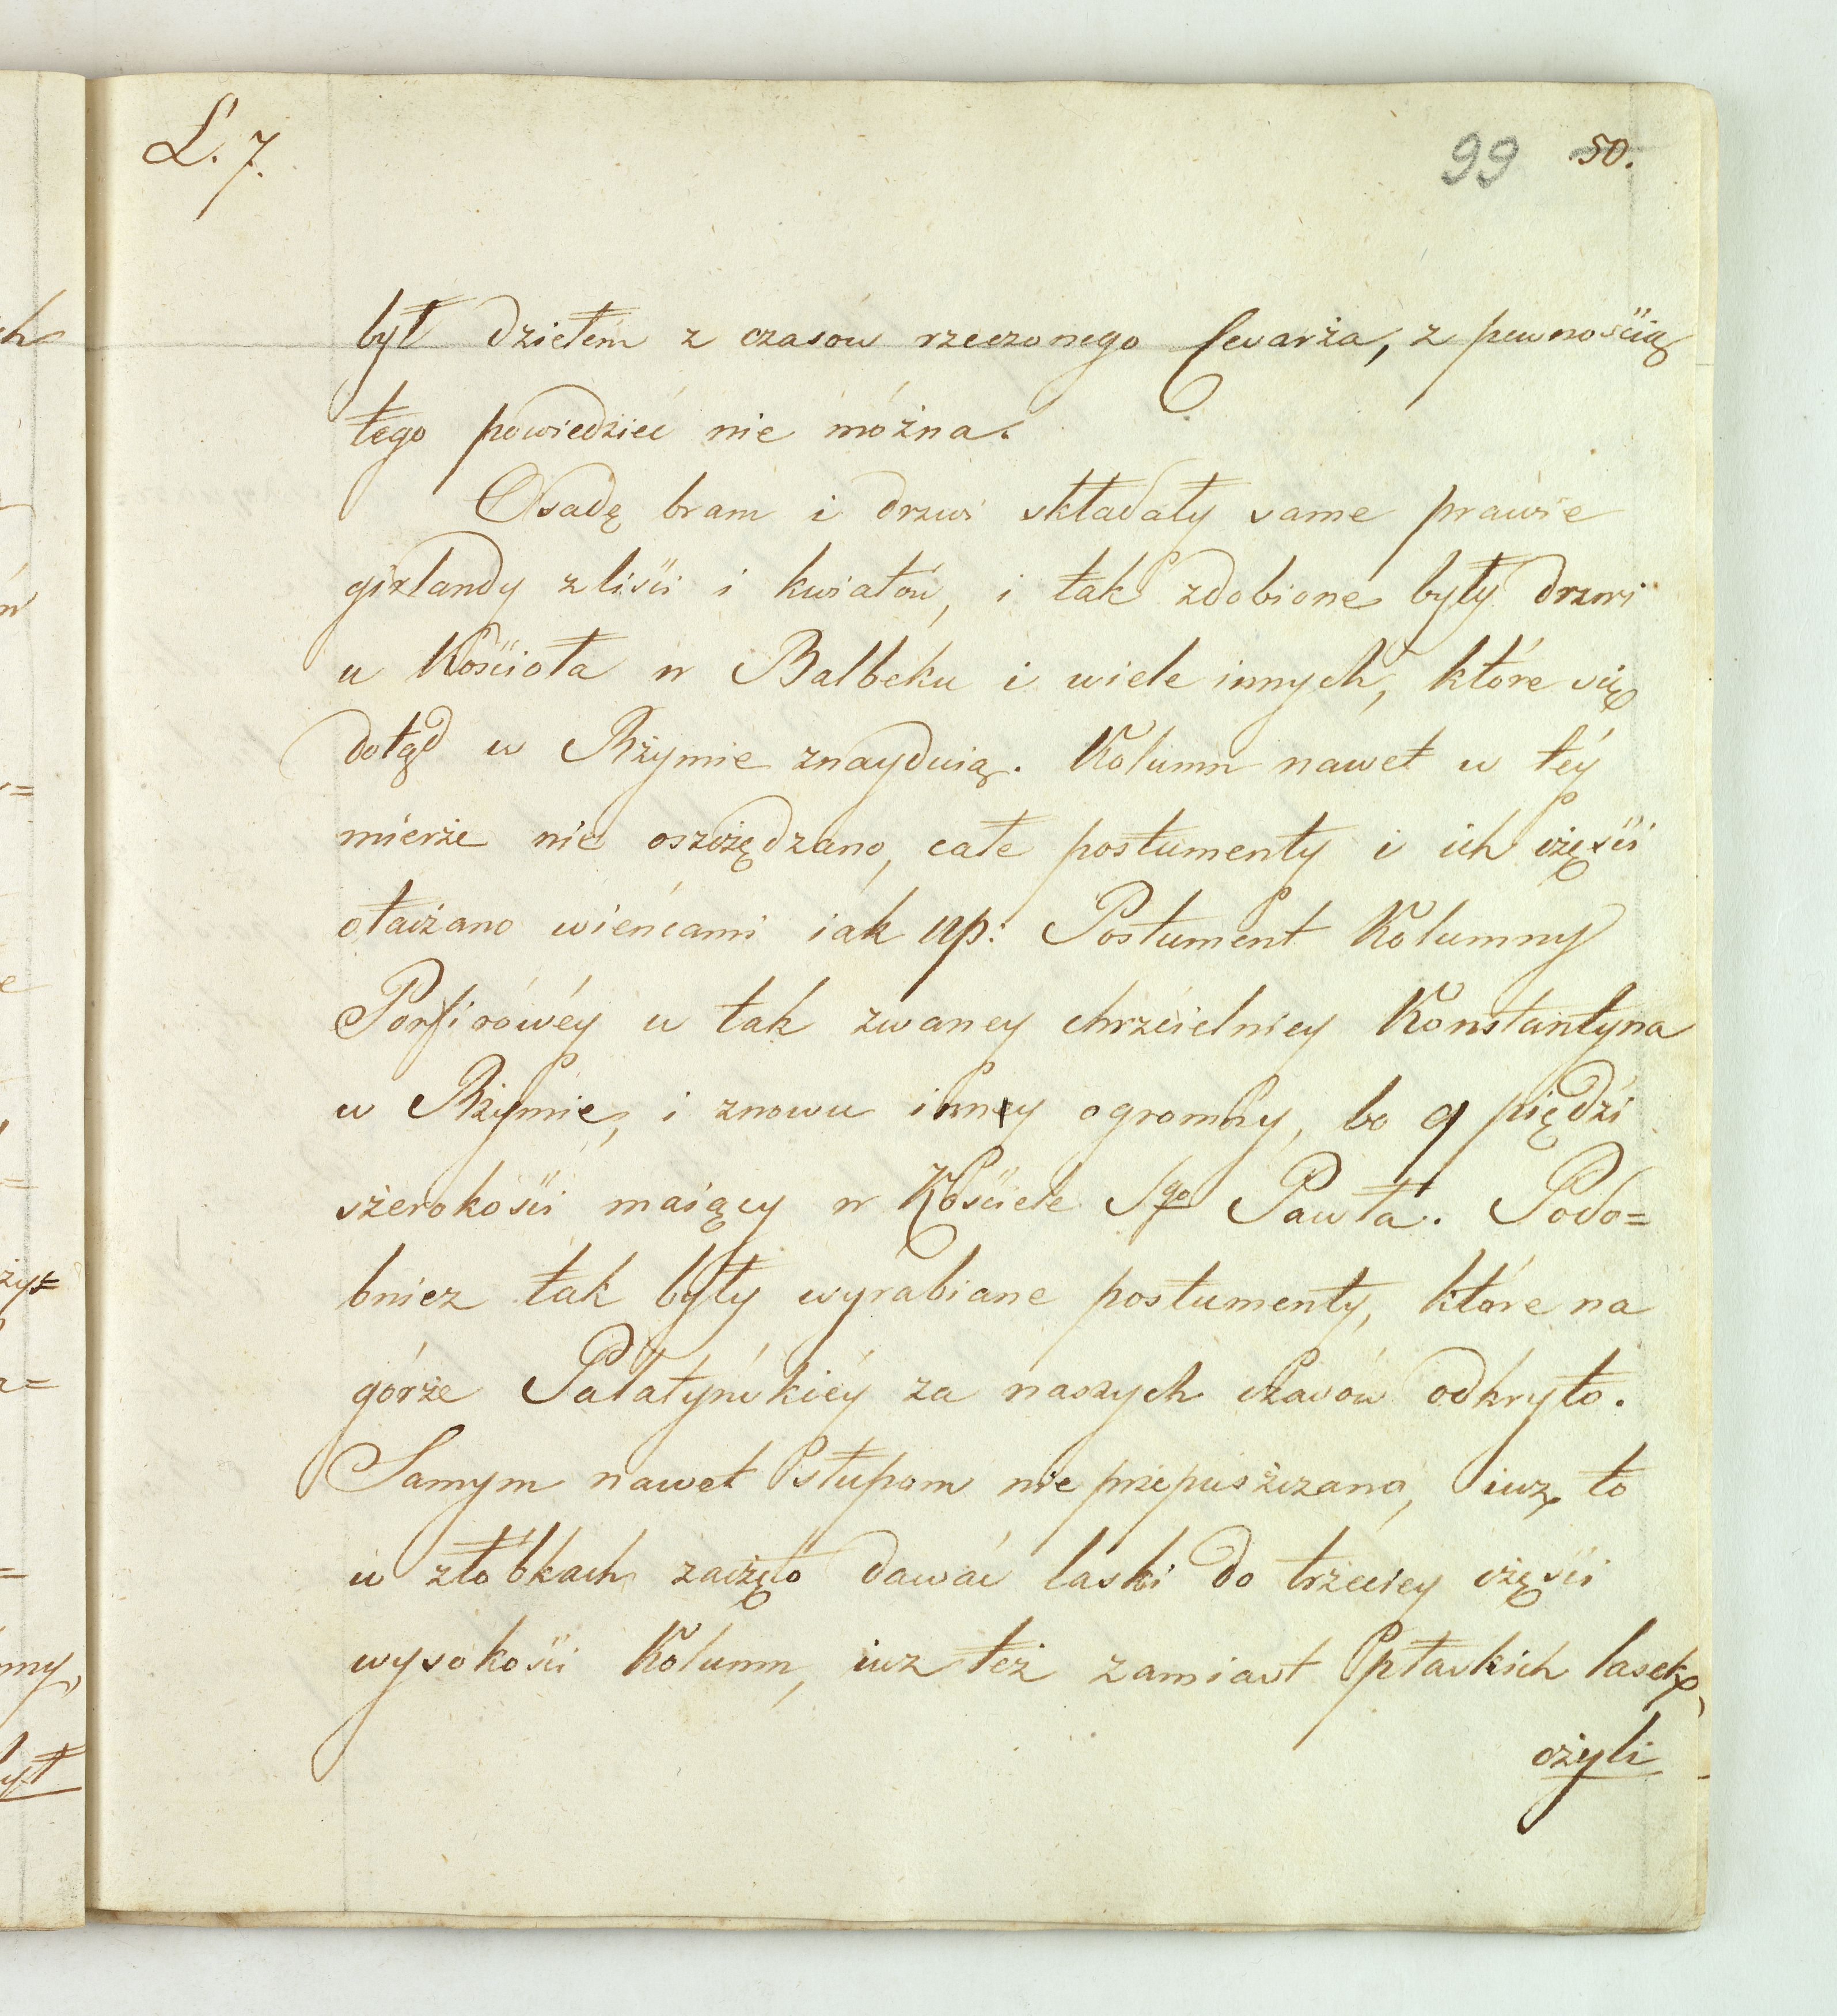 L. 7.
99 50.
był dziełem z czasów rzeczonego Cesarża, z pewnością
tego powiedzieć nie można.
Osadę bram i drzwi składały same prawie
girlandy z liści i kwiatów, i tak zdobione były drzwi
u Kościoła w Balbeku i wiele innych, które się
dotąd w Rżymie znayduią. Kolumn nawet w téy
mierże nie oszczędzano, całe postumenty i ich części
otaczano wieńcami iak np: Postument Kolumny
Porfirówéy u tak zwaney chrzcielnicy Konstantyna
w Rżymie, i znowu inny ogromny, bo 9 piędzi
szerokości maiący w Kościele Sgo Pawła. Podo=
bniez tak były wyrabiane postumenty, które na
górże Palatyńskiéy za naszych czasów odkryto.
Samym nawet słupom nie przepuszczano, iuz to
w złóbkach zaczęto dawać laski do trzeciey części
wysokości Kolumn, iuz też zamiast płaskich lasek,
czyli